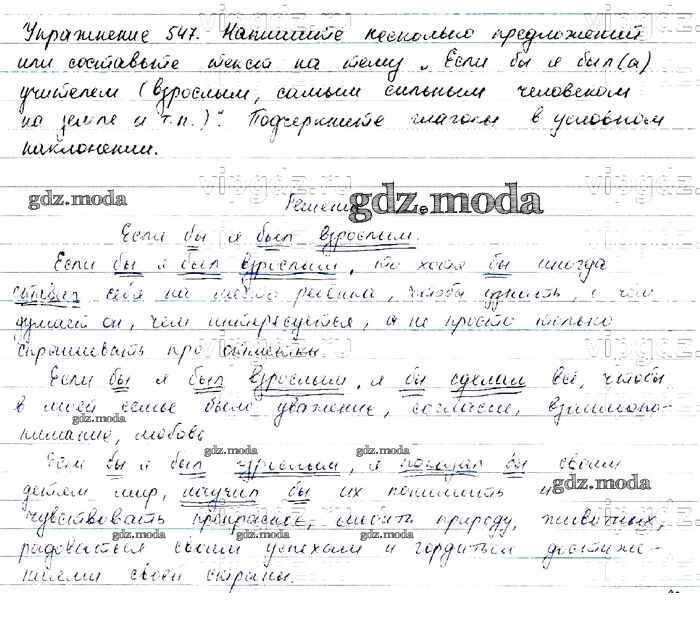 Упражнение 547. Напишите несколько предложений
или составьте текст на тему „Если бы я был(а)
учителем (взрослым, самым сильным человеком
на земле и т.п.)". Подчеркните глаголы в условном
наклонении.
Решение
Если бы я был взрослым.
Если бы я был взрослым, то хотя бы иногда
ставил себя на место ребенка, чтобы узнать, о чем
думает он, чем интересуется, а не просто только
спрашивать про отметки
Если бы я был взрослым, я бы сделал всё, чтобы
в моей семье было уважение, согласие, взаимопо-
нимание, любовь
Если бы я был взрослым, я показал бы своим
детям мир, научил бы их понимать и
чувствовать прекрасное, любить природу, животных,
радоваться своим успехам и гордиться достиже-
ниями своей страны.
gdz.moda
gdz.moda
gdz.moda
gdz.moda
gdz.moda
gdz.moda
gdz.moda
gdz.moda
vipgdz.ru